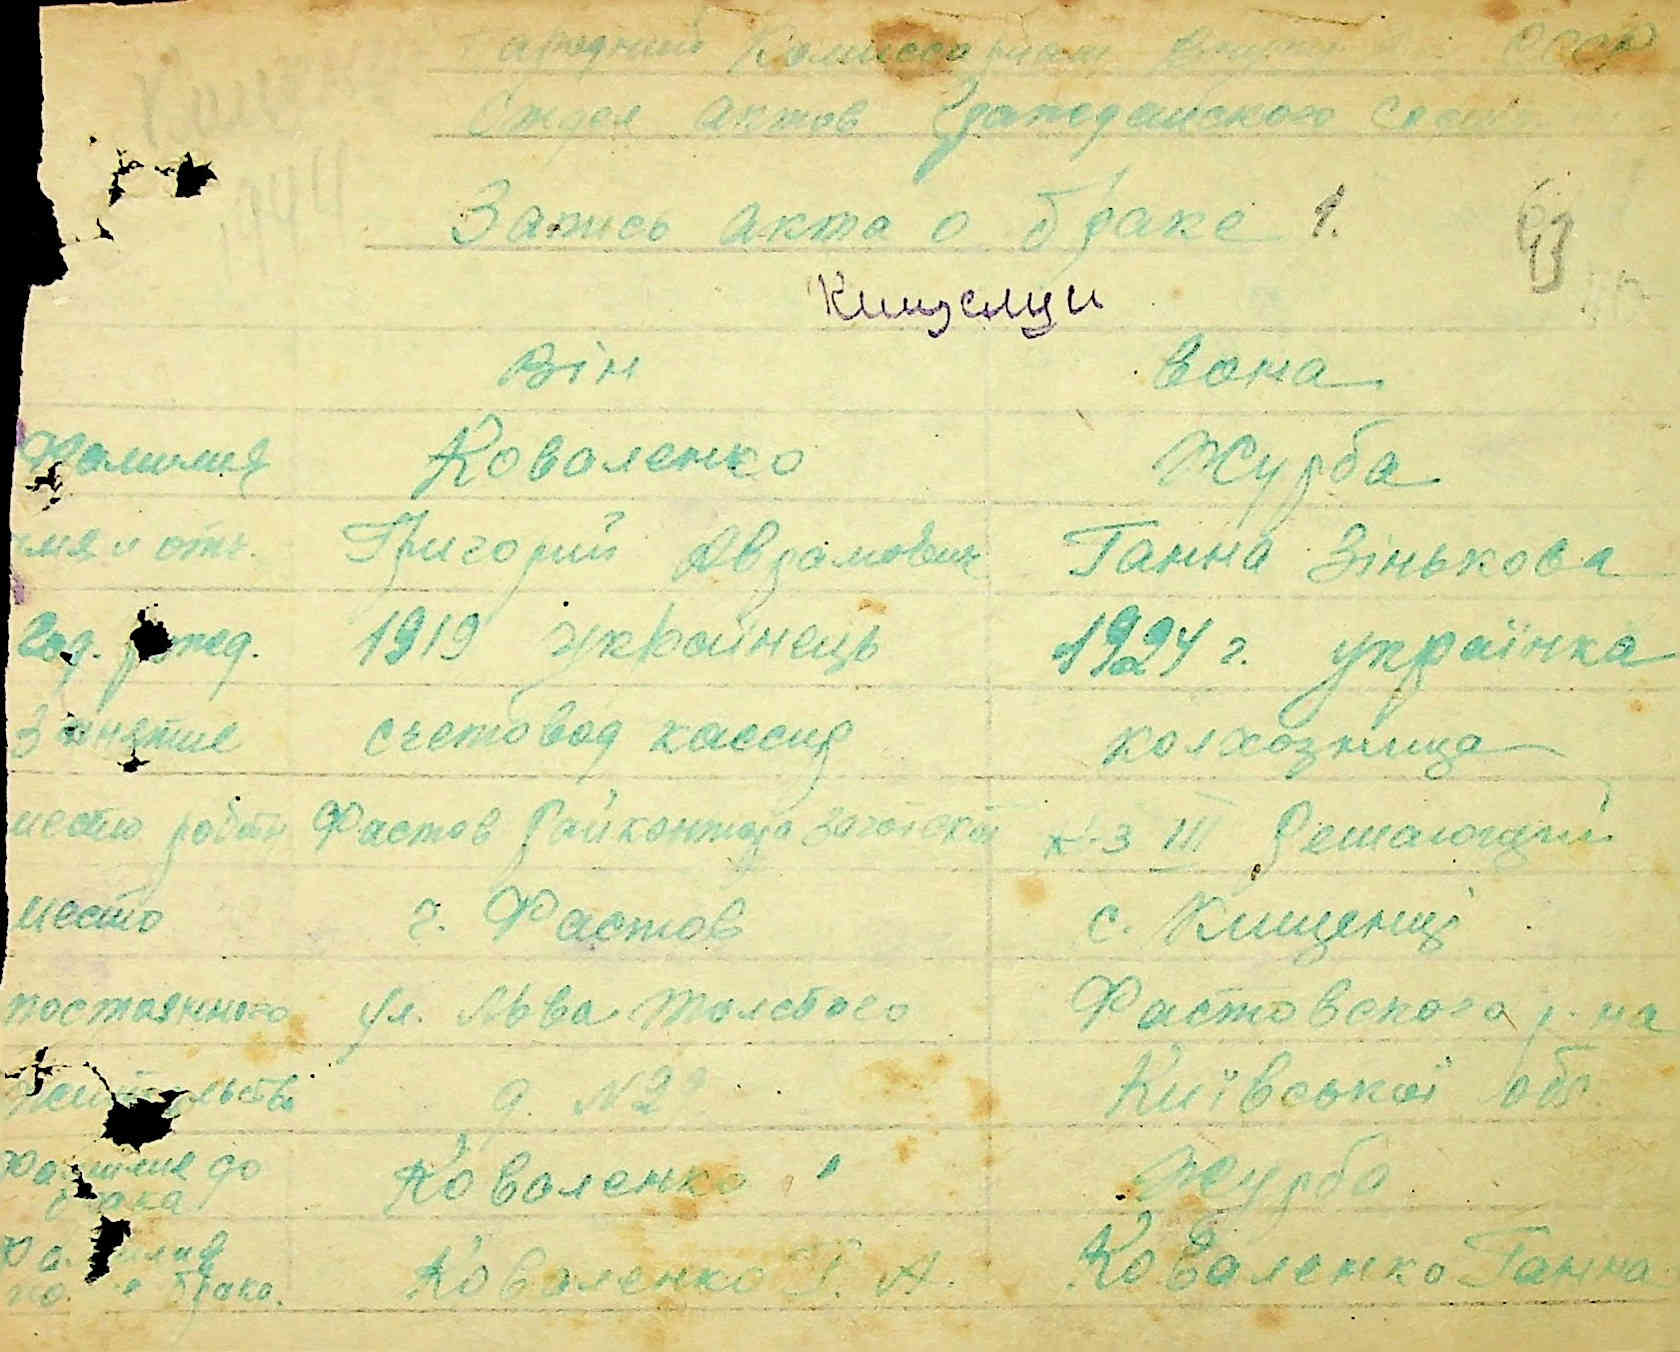 Народний Комиссариат Внутр СССР
Отдел актов Гражданского Состо
1944
Запись акта о браке 1.
Він Вона
Фамилия Коваленко Журба
имя и отч. Григорий Аврамович Ганна Зінькова
Год. рожд. 1919 українець 1924 г. українка
Занятие счетовод кассир колхозница
место роботи Фастов Райконтора к-з III Решающий
место г. Фастов с. Кищенці
постоянного ул. Льва Толстого Фастовского р-на
жительства д. № 2 Київської обл.
Фамилия до Коваленко Журба
брака
Фамилия Коваленко Г. А. Коваленко Ганна
по брака.